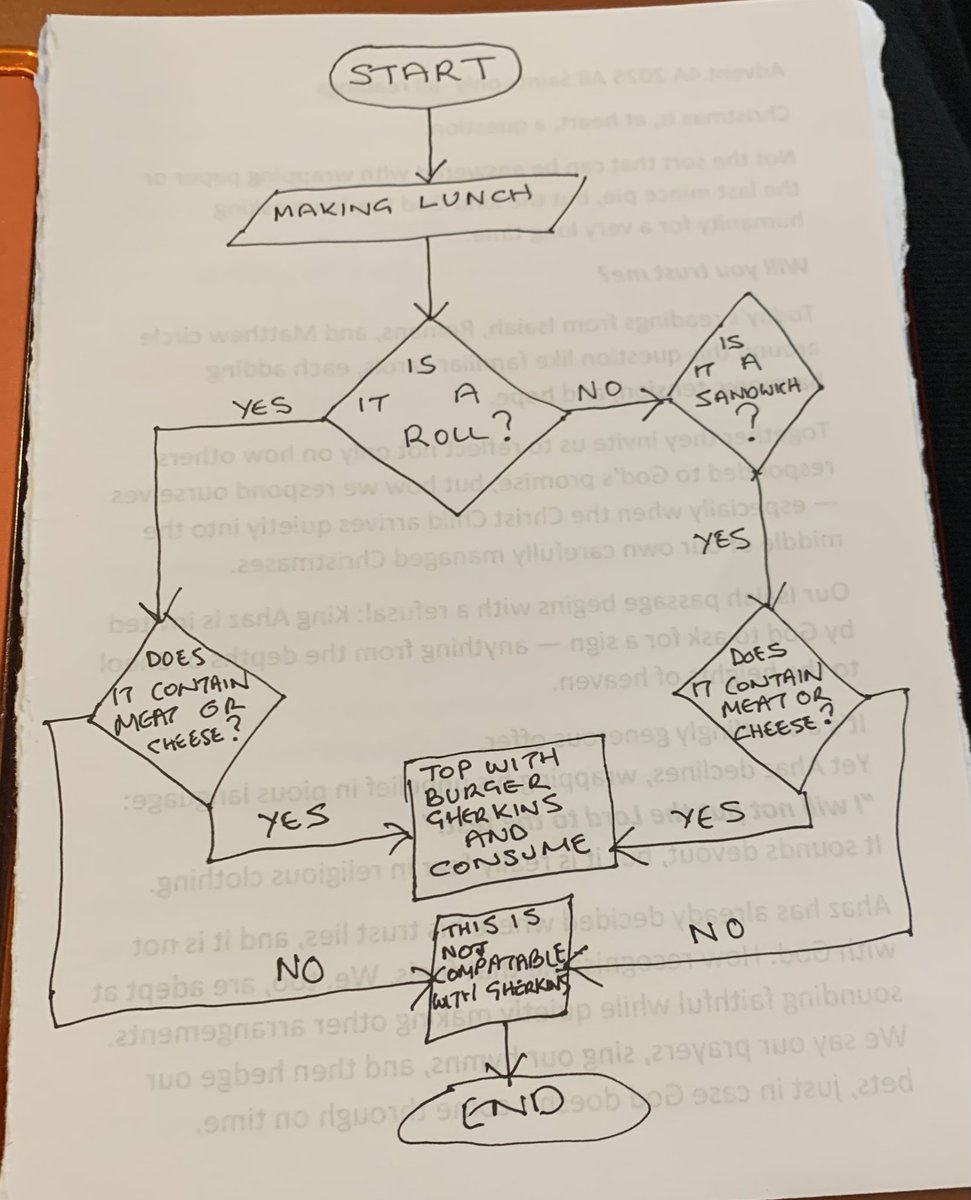 START
MAKING LUNCH
IS
IT A
ROLL?
YES
NO
IS
IT A
SANDWICH
?
YES
DOES
IT CONTAIN
MEAT OR
CHEESE?
DOES
IT CONTAIN
MEAT OR
CHEESE?
YES
TOP WITH
BURGER
GHERKINS
AND
CONSUME
YES
NO
THIS IS
NOT
COMPATABLE
WITH GHERKINS
NO
END